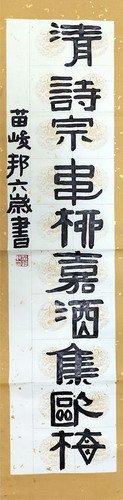 清詩宗韋柳嘉酒集歐梅
苗峻邦六歲書